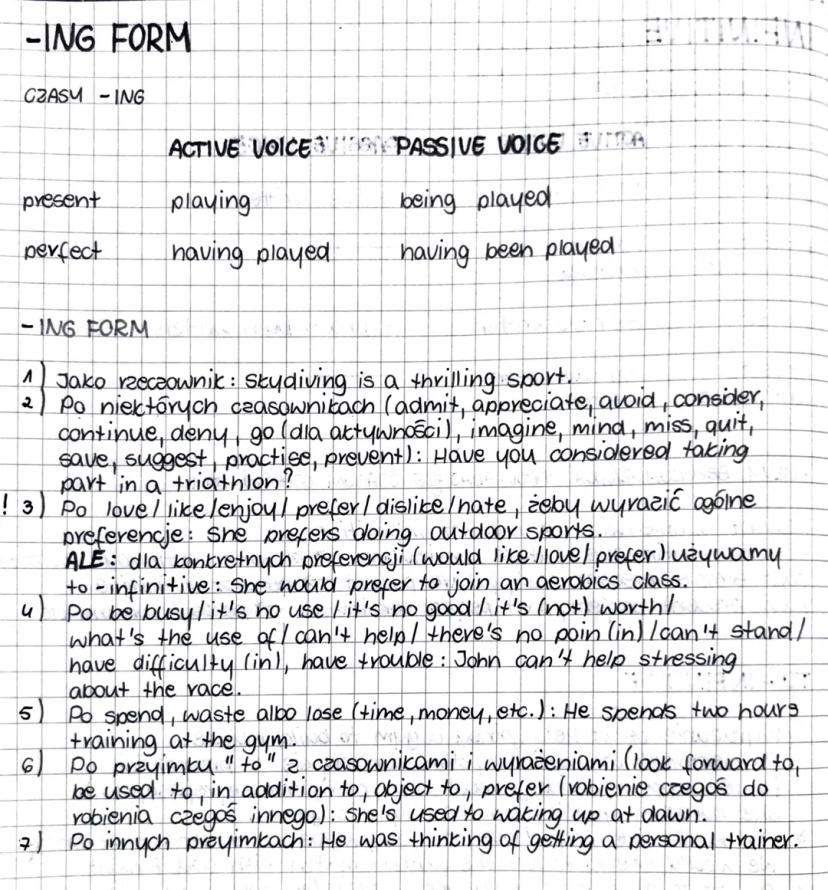 -ING FORM
CZASY -ING
ACTIVE VOICE PASSIVE VOICE
present playing being played
perfect having played having been played
-ING FORM
1) Jako rzeczownik: Skydiving is a thrilling sport.
2) Po niektórych czasownikach (admit, appreciate, avoid, consider,
continue, deny, go (dla aktywności), imagine, mind, miss, quit,
save, suggest, practise, prevent): Have you considered taking
part in a triathlon?
! 3) Po love/like/enjoy/prefer/dislike/hate, żeby wyrazić ogólne
preferencje: She prefers doing outdoor sports.
ALE: dla konkretnych preferencji (would like/love/prefer) używamy
to-infinitive: She would prefer to join an aerobics class.
4) Po be busy/it's no use/it's no good/it's (not) worth/
what's the use of/can't help/there's no poin (in)/can't stand/
have difficulty (in), have trouble: John can't help stressing
about the race.
5) Po spend, waste albo lose (time, money, etc.): He spends two hours
training at the gym.
6) Po przyimku "to" z czasownikami i wyrażeniami (look forward to,
be used to, in addition to, object to, prefer (robienie czegoś do
robienia czegoś innego): She's used to waking up at dawn.
7) Po innych przyimkach: He was thinking of getting a personal trainer.